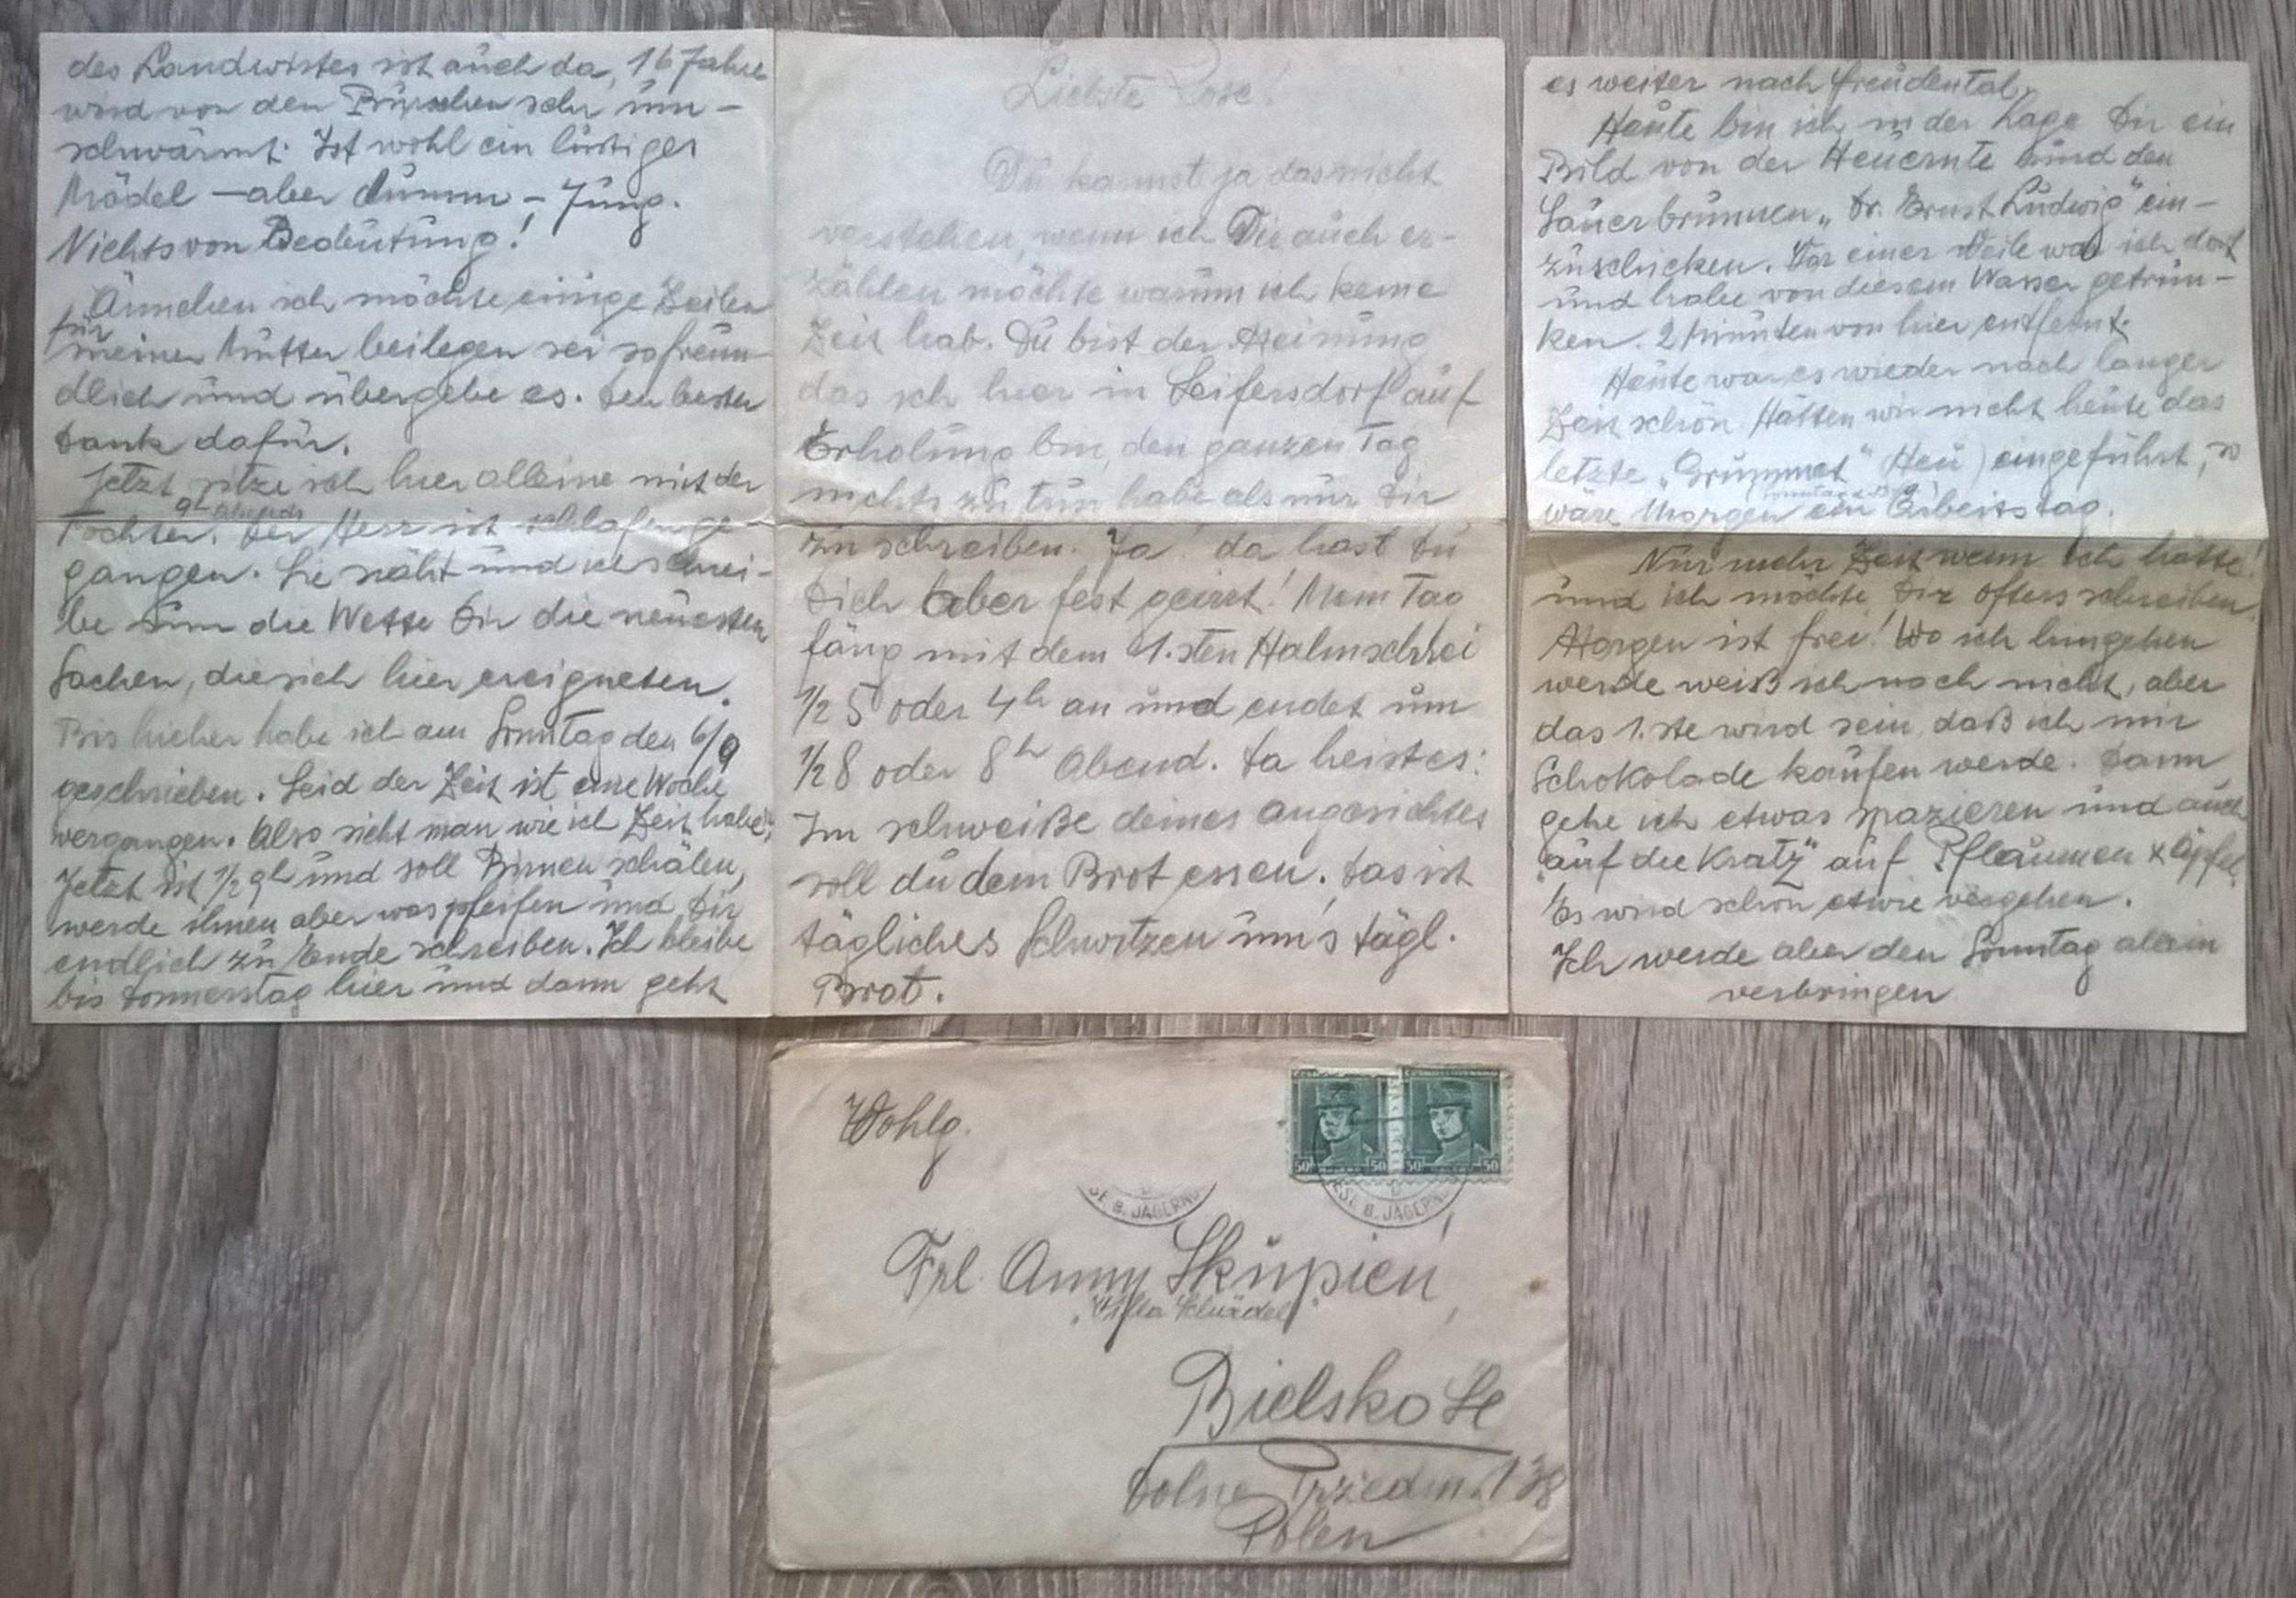 Liebste Rose!
Du kannst ja das nicht
verstehen, wenn ich Dir auch er-
zählen möchte warum ich keine
Zeit hab. Du bist der Meinung
das ich hier in Seifersdorf auf
Erholung bin, den ganzen Tag
nichts zu tun habe als nur Dir
zu schreiben. Ja! da hast Du
Dich aber fest geirrt! Mein Tag
fäng mit dem 1.sten Hahnschrei
1/2 5 oder 4h an und endet um
1/2 8 oder 8h Abend. Da heist es:
Im schweiße deines Angesichtes
soll du dein Brot essen. Das ist
tägliches Schwitzen um's tägl.
Brot.
des Landwirtes ist auch da, 16 Jahre
wird von den Burschen sehr um-
schwärmt. Ist wohl ein lustiges
Mädel – aber dumm – Jung.
Nichts von Bedeutung!
Ännchen ich möchte einige Zeilen
für
meiner Mutter beilegen sei so freun-
dlich und übergebe es. Den besten
Dank dafür.
Jetzt sitze ich hier alleine mit der
9h abends
Tochter. Der Herr ist schlafen ge-
gangen. Sie näht und ich schrei-
be um die Wette Dir die neuesten
Sachen, die sich hier ereigneten.
Bis hieher habe ich am Sonntag den 6/9
geschrieben. Seid der Zeit ist eine Woche
vergangen. Also sieht man wie ich Zeit habe!
Jetzt ist 1/2 9h und soll Birnen schälen,
werde ihnen aber was pfeifen und Dir
endlich zu Ende schreiben. Ich bleibe
bis Donnerstag hier und dann geht
es weiter nach Freudental.
Heute bin ich in der Lage Dir ein
Bild von der Heuernte und den
Sauerbrunnen „Dr. Ernst Ludwig" ein-
zuschicken. Vor einer Weile war ich dort
und habe von diesem Wasser getrun-
ken. 2 Minuten von hier entfernt.
Heute war es wieder nach langer
Zeit schön. Hätten wir nicht heute das
letzte „Grummet" (Heu) eingeführt, so
wäre Morgen ein Arbeitstag.
Nur mehr Zeit wenn ich hätte!
und ich möchte Dir öfters schreiben.
Morgen ist frei! Wo ich hingehen
werde weiß ich noch nicht, aber
das 1.ste wird sein, daß ich mir
Schokolade kaufen werde. Dann
gehe ich etwas spazieren und auch
„auf die Kratz" auf Pflaumen & Äpfel.
Es wird schon etwie vergehen.
Ich werde aber den Sonntag allein
verbringen
Wohlg.
ČESKOSLOVENSKO ČESKOSLOVENSKO
50 50 50 50
B. JÄGERN
B. JÄGERN
Frl. Anny Skupien
Bielsko Sl
Dolne Przedm. 138
Polen